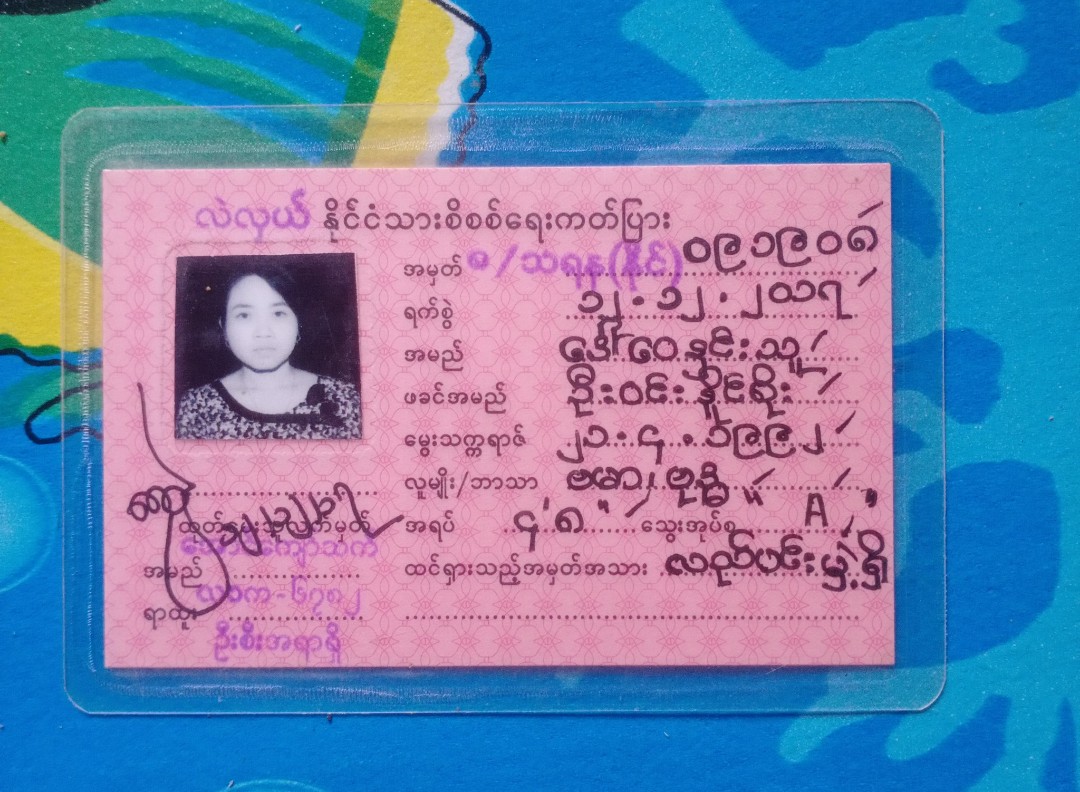 လဲလှယ် နိုင်ငံသားစိစစ်ရေးကတ်ပြား
အမှတ် ၈/သရန(နိုင်) ၀၉၁၉၀၆
ရက်စွဲ ၁၂.၁၂.၂၀၁၇
အမည် ဒေါ်ဝေနှင်းသူ
ဖခင်အမည် ဦးဝင်းနိုင်စိုး
မွေးသက္ကရာဇ် ၂၁.၄.၁၉၉၂
လူမျိုး/ဘာသာ ဗမာ/ဗုဒ္ဓ
အရပ် ၄'၈" သွေးအုပ်စု "A"
ထင်ရှားသည့်အမှတ်အသား လည်ပင်းမှဲ့ရှိ
ထုတ်ပေးသူလက်မှတ်
အမည် အောင်ကျော်သက်
လဝက-၆၇၈၂
ရာထူး ဦးစီးအရာရှိ